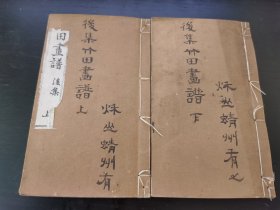 田畫譜
後集
上
後集竹田畫譜 上
蜻州有
後集竹田畫譜 下
蜻州有之